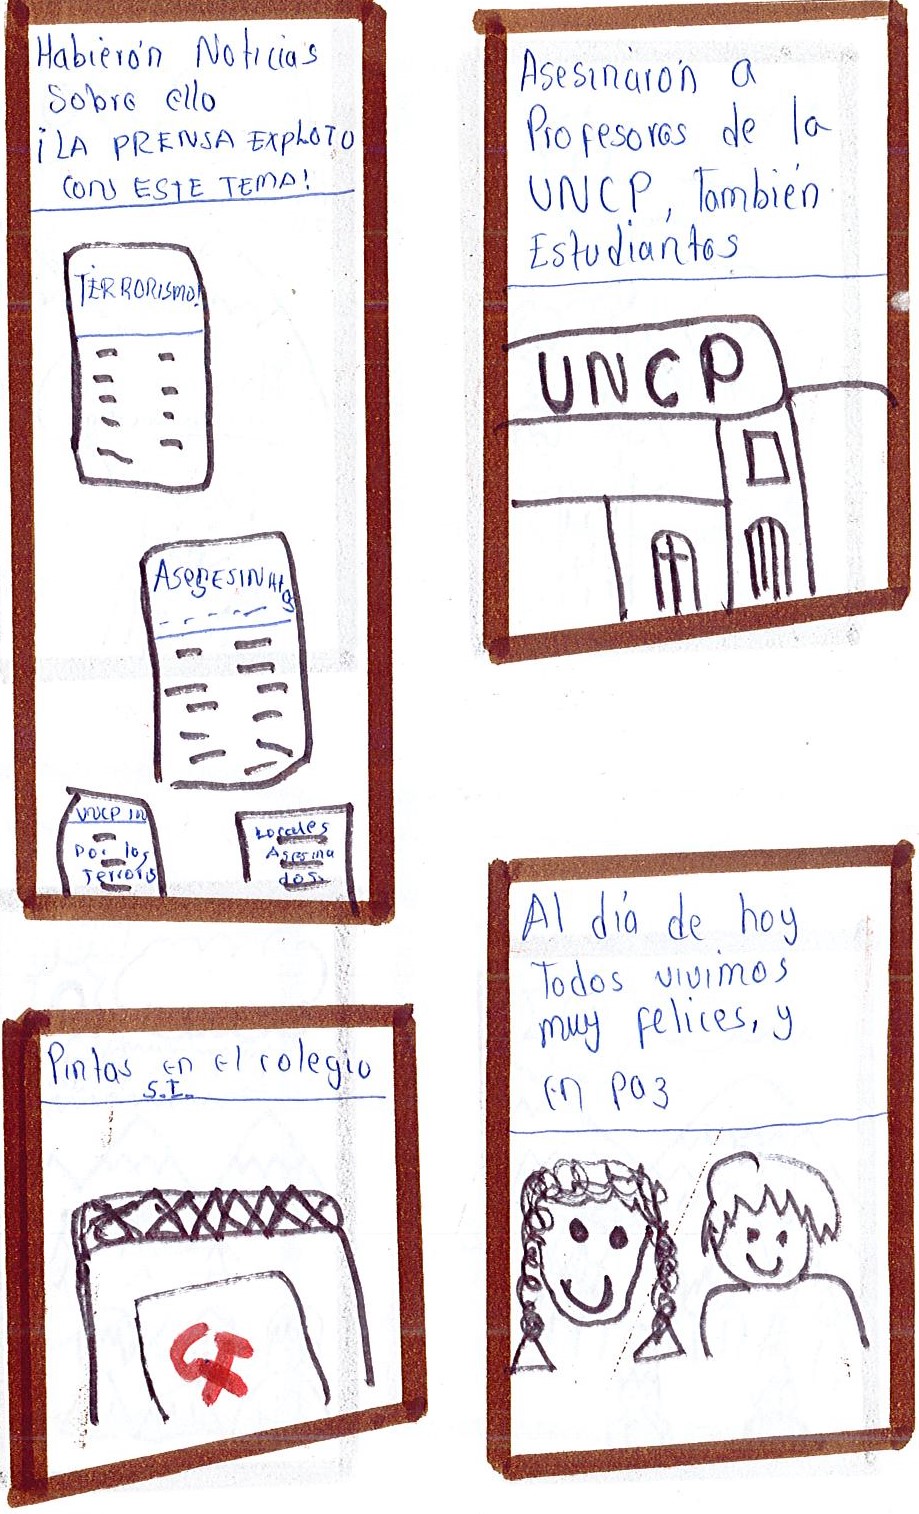 Habierón Noticias
Sobre ello
¡LA PRENSA EXPLOTO
CON ESTE TEMA!
TERRORISMO!
ASEGESINATO
UNCP IN
Por los
Terroris
Locales
Asesina
dos
Asesinarón a
Profesores de la
UNCP, También
Estudiantes
UNCP
Pintas en el colegio
S.I.
Al día de hoy
Todos vivimos
muy felices, y
en paz